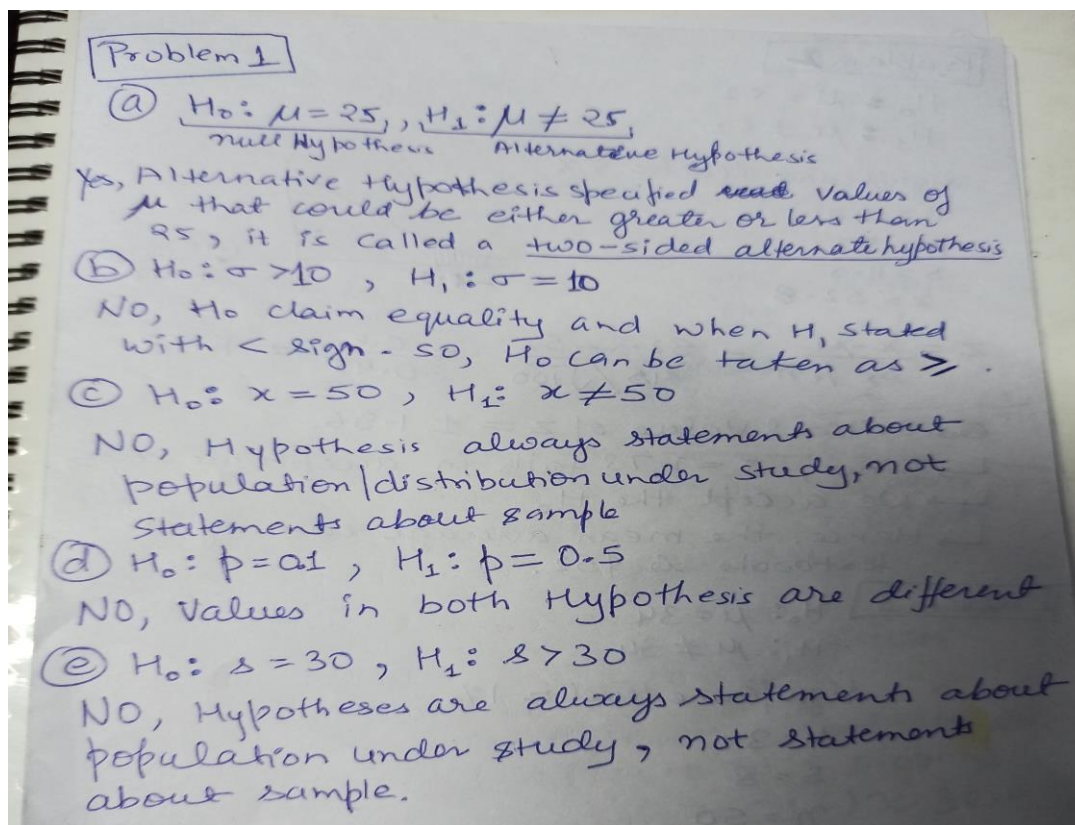 Problem 1
(a) H₀: μ = 25, , H₁: μ ≠ 25,
null Hypothesis Alternative Hypothesis
Yes, Alternative Hypothesis specified values of
μ that could be either greater or less than
25, it is called a two-sided alternate hypothesis
(b) H₀: σ > 10 , H₁: σ = 10
NO, H₀ claim equality and when H₁ stated
with < sign. so, H₀ can be taken as ≥.
(c) H₀: x = 50 , H₁: x ≠ 50
NO, Hypothesis always statements about
population/distribution under study, not
statements about sample
(d) H₀: p = 0.1 , H₁: p = 0.5
NO, values in both Hypothesis are different
(e) H₀: s = 30 , H₁: s > 30
NO, Hypotheses are always statements about
population under study, not statements
about sample.